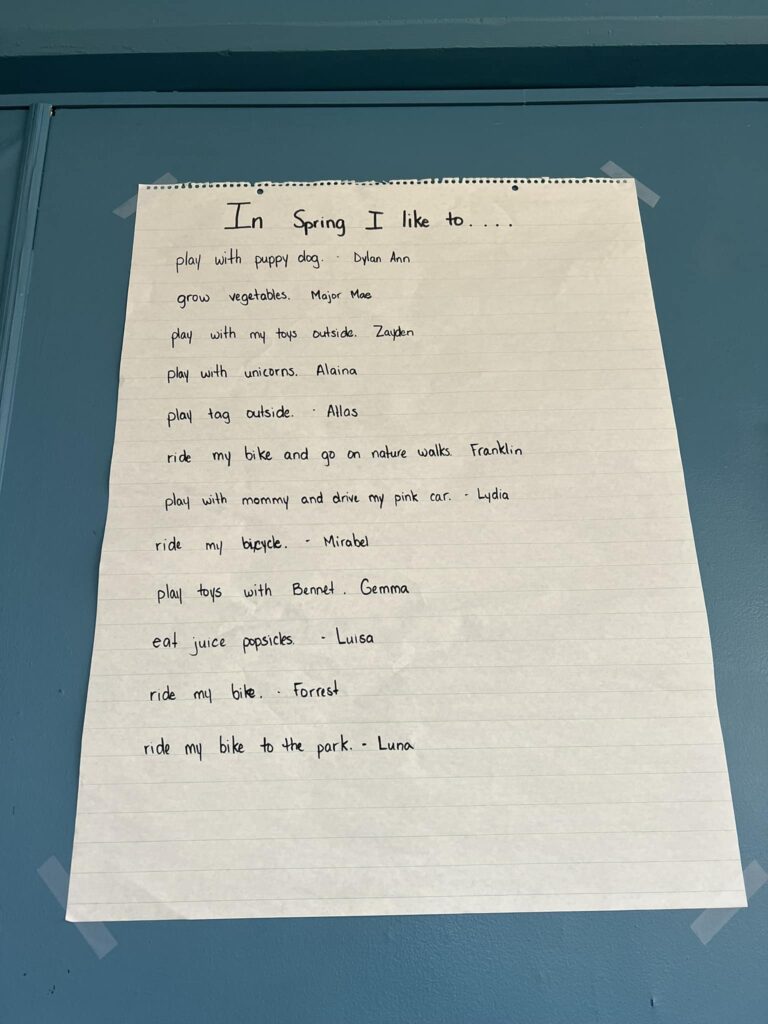 In Spring I like to....
play with puppy dog. - Dylan Ann
grow vegetables. Major Mae
play with my toys outside. Zayden
play with unicorns. Alaina
play tag outside. - Atlas
ride my bike and go on nature walks. Franklin
play with mommy and drive my pink car. - Lydia
ride my bicycle. - Mirabel
play toys with Bennet. Gemma
eat juice popsicles. - Luisa
ride my bike. - Forrest
ride my bike to the park. - Luna